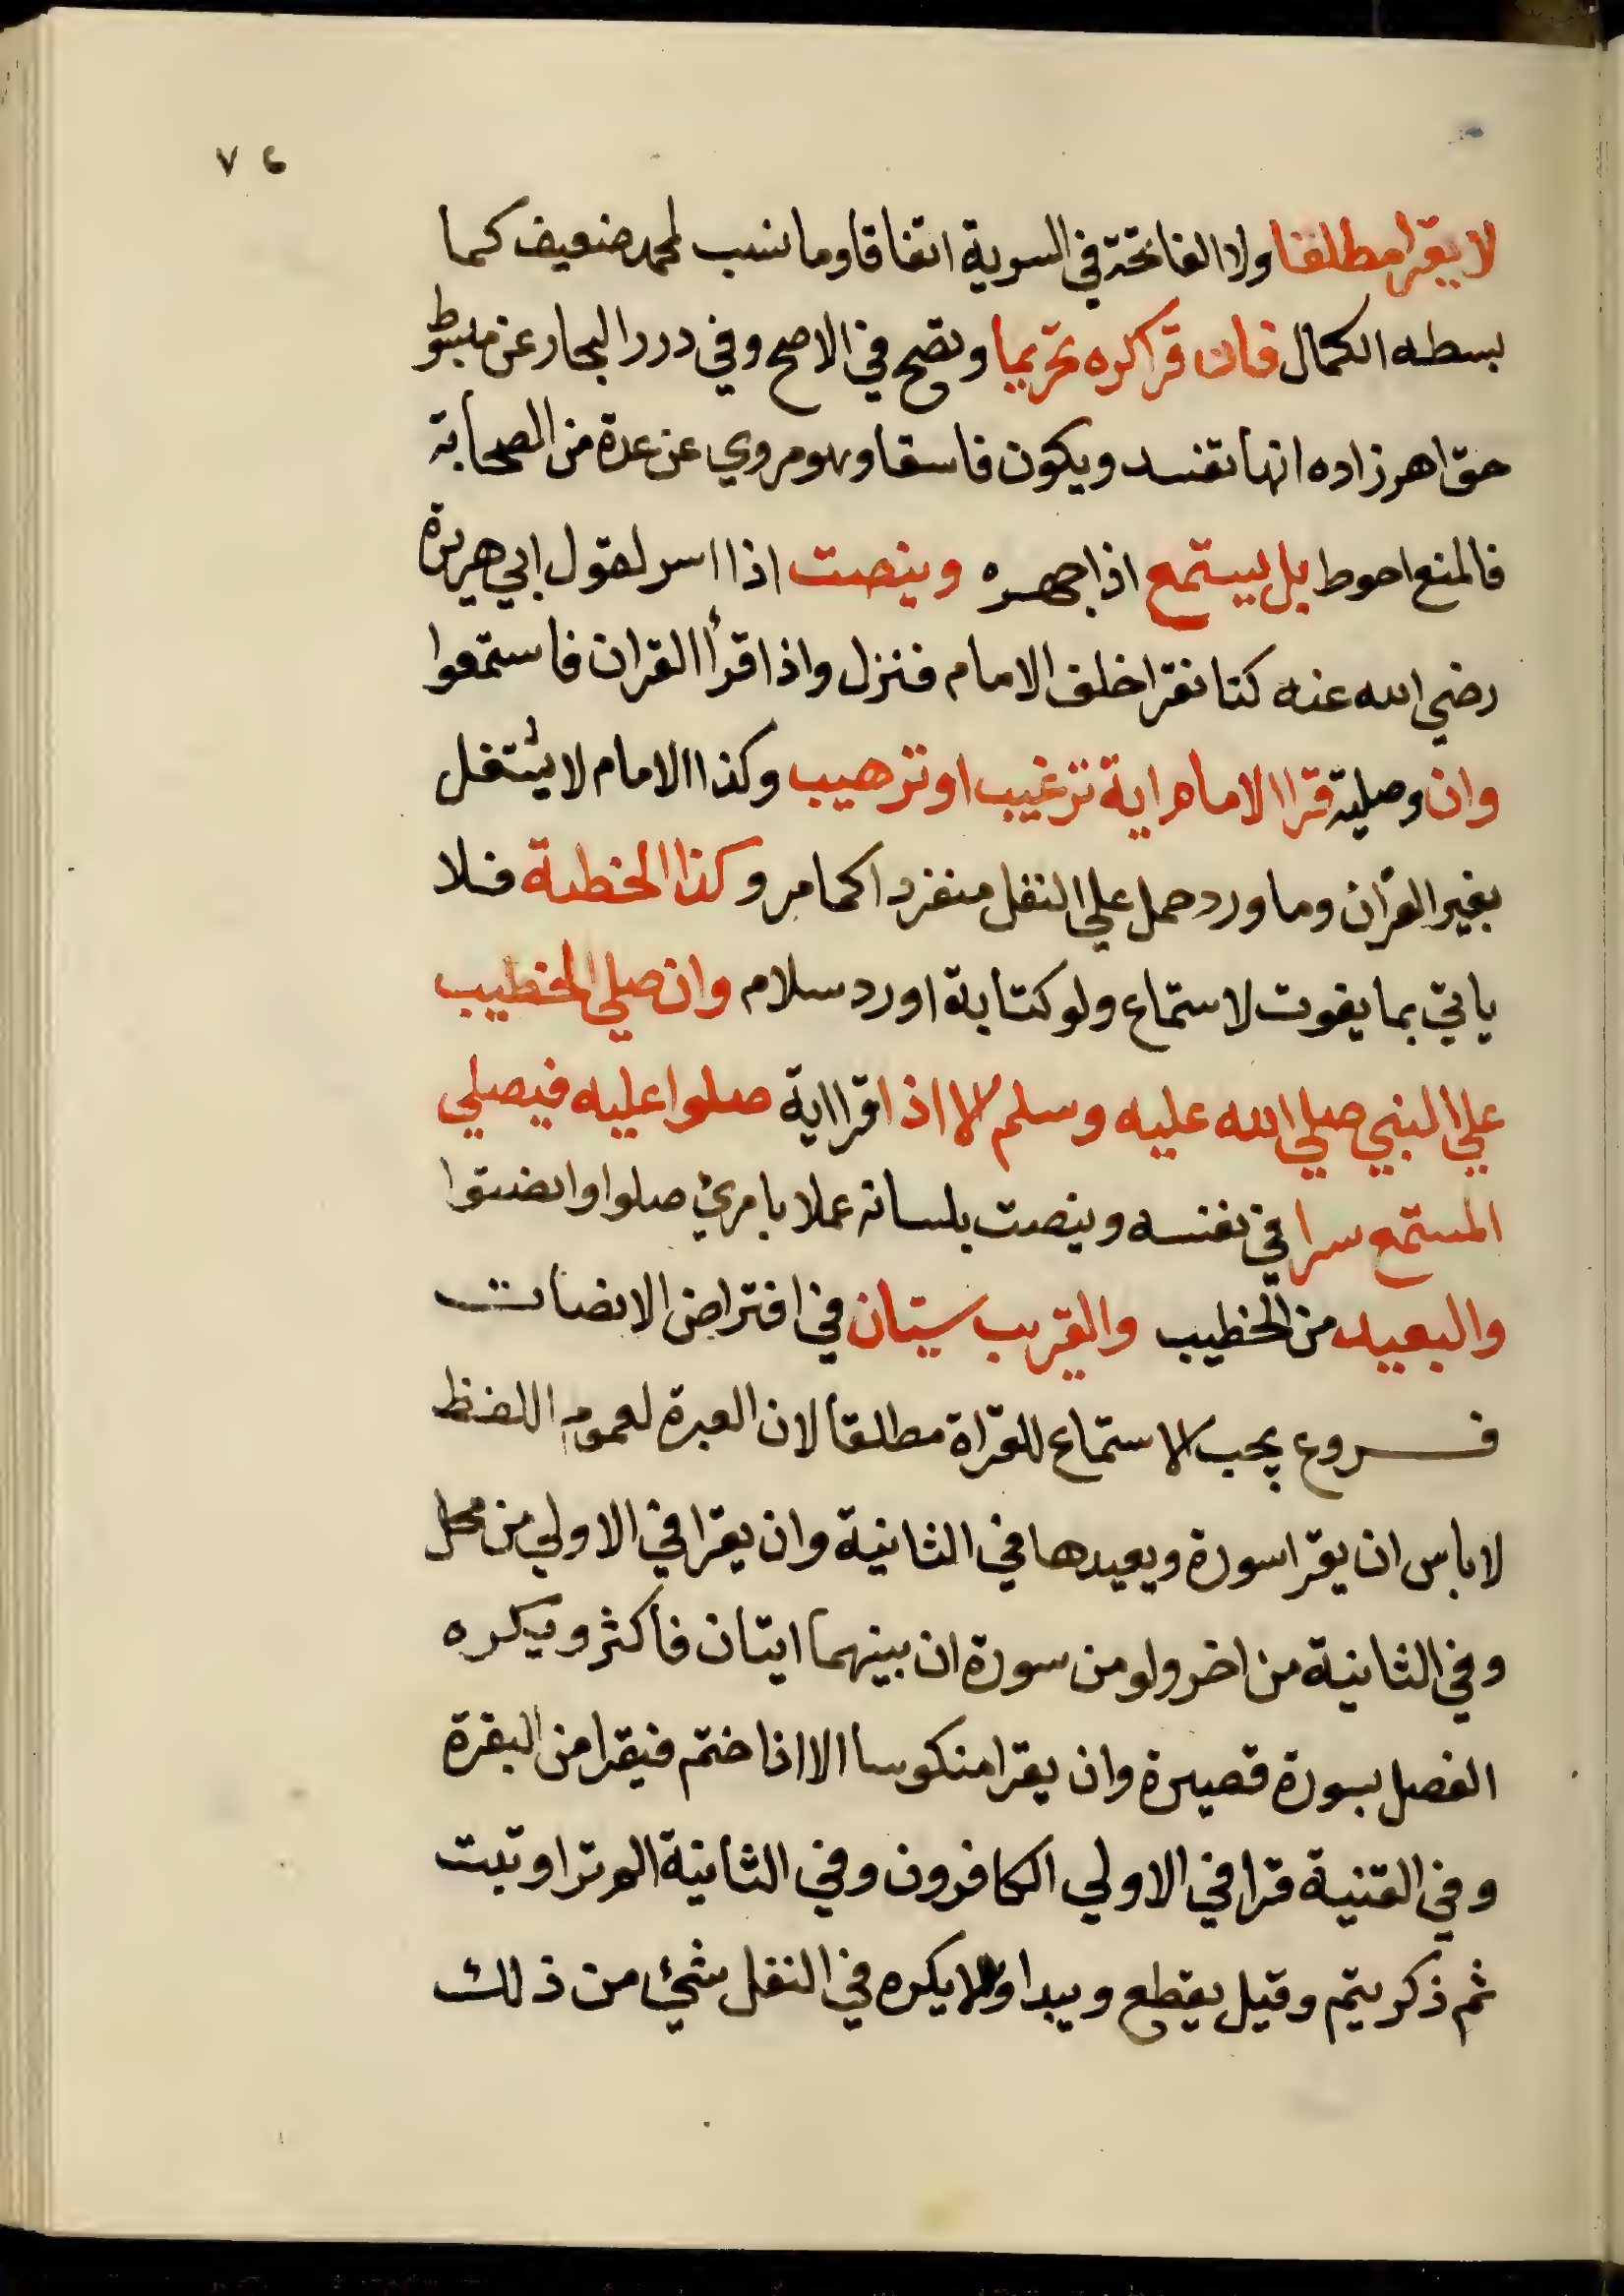 ٧٤
لا يقرا مطلقا ولا الفاتحة في السرية اتفاقا وما نسب لمحمد ضعيف كما
بسطه الكمال فان قرا كره تحريما وتصح في الاصح وفي درر البحار عن مبسوط
خواهر زاده انها تفسد ويكون فاسقا وهو مروي عن عدة من الصحابة
فالمنع احوط بل يستمع اذا جهر وينصت اذا اسر لقول ابي هريرة
رضي الله عنه كنا نقرا خلف الامام فنزل واذا قرأ القران فاستمعوا
وان وصلية قرا الامام اية ترغيب او ترهيب وكذا الامام لا يشتغل
بغير القرآن وما ورد حمل علي النفل منفردا كما مر وكذا الخطبة فلا
ياتي بما يفوت لاستماع ولو كتابة او رد سلام وان صلي الخطيب
علي النبي صلي الله عليه وسلم الا اذا قرا اية صلوا عليه فيصلي
المستمع سرا في نفسه وينصت بلسانه عملا بامرئ صلوا وانصتوا
والبعيد من الخطيب والقريب سيان في افتراض الانصات
فروع يجب الاستماع للقراة مطلقا لان العبرة لعموم اللفظ
لا باس ان يقرا سورة ويعيدها في الثانية وان يقرا في الاولي من محل
وفي الثانية من اخر ولو من سورة ان بينهما ايتان فاكثر ويكره
الفصل بسورة قصيرة وان يقرا منكوسا الا اذا ختم فيقرا من البقرة
وفي القنية قرا في الاولي الكافرون وفي الثانية الم تر او تبت
ثم ذكر يتم وقيل يقطع ويبدا ولا يكره في النفل شئ من ذلك